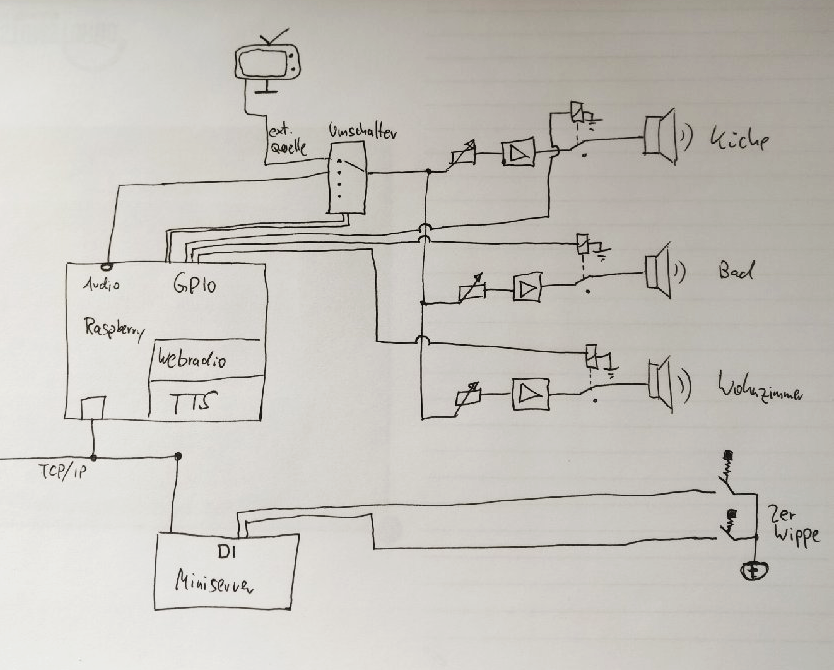 ext.
Quelle
Umschalter
Küche
Audio
GPIO
Raspberry
Webradio
TTS
Bad
Wohnzimmer
TCP/IP
DI
Miniserver
2er
Wippe